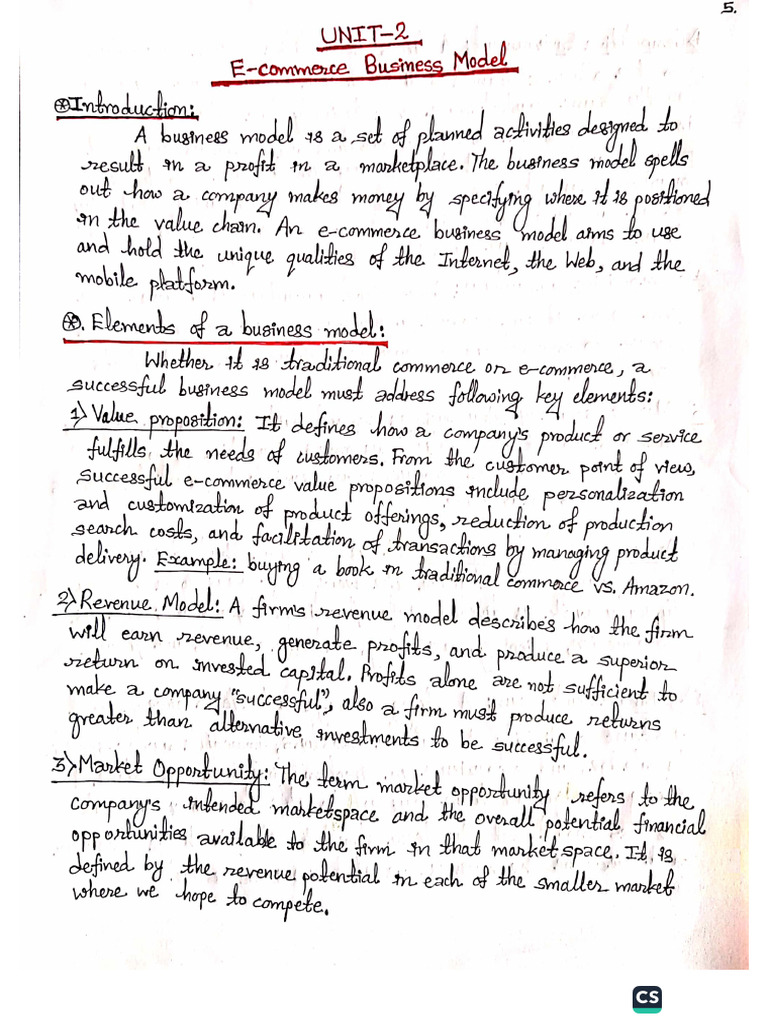 5.
UNIT-2
E-commerce Business Model
⊛Introduction:
A business model is a set of planned activities designed to
result in a profit in a marketplace. The business model spells
out how a company makes money by specifying where it is positioned
in the value chain. An e-commerce business model aims to use
and hold the unique qualities of the Internet, the Web, and the
mobile platform.
⊛. Elements of a business model:
Whether it is traditional commerce or e-commerce, a
successful business model must address following key elements:
1) Value proposition: It defines how a company's product or service
fulfills the needs of customers. From the customer point of view,
successful e-commerce value propositions include personalization
and customization of product offerings, reduction of production
search costs, and facilitation of transactions by managing product
delivery. Example: buying a book in traditional commerce vs. Amazon.
2) Revenue Model: A firm's revenue model describe's how the firm
will earn revenue, generate profits, and produce a superior
return on invested capital. Profits alone are not sufficient to
make a company "successful", also a firm must produce returns
greater than alternative investments to be successful.
3) Market Opportunity: The term market opportunity refers to the
company's intended marketspace and the overall potential financial
opportunities available to the firm in that market space. It is
defined by the revenue potential in each of the smaller market
where we hope to compete.
CS